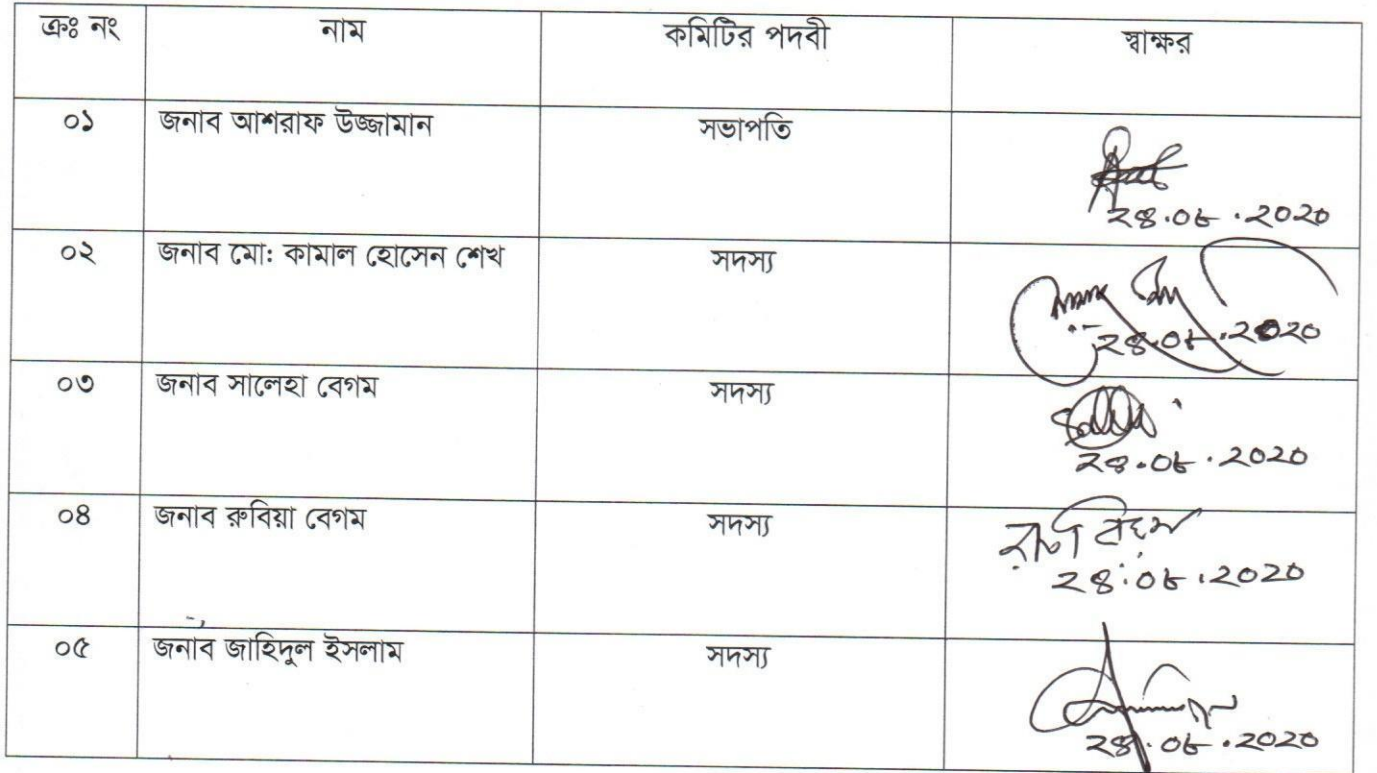 ক্রঃ নং নাম কমিটির পদবী স্বাক্ষর
০১ জনাব আশরাফ উজ্জামান সভাপতি
২৪.০৮.২০২০
০২ জনাব মো: কামাল হোসেন শেখ সদস্য
২৪.০৮.২০২০
০৩ জনাব সালেহা বেগম সদস্য
২৪.০৮.২০২০
০৪ জনাব রুবিয়া বেগম সদস্য
২৪.০৮.২০২০
০৫ জনাব জাহিদুল ইসলাম সদস্য
২৪.০৮.২০২০